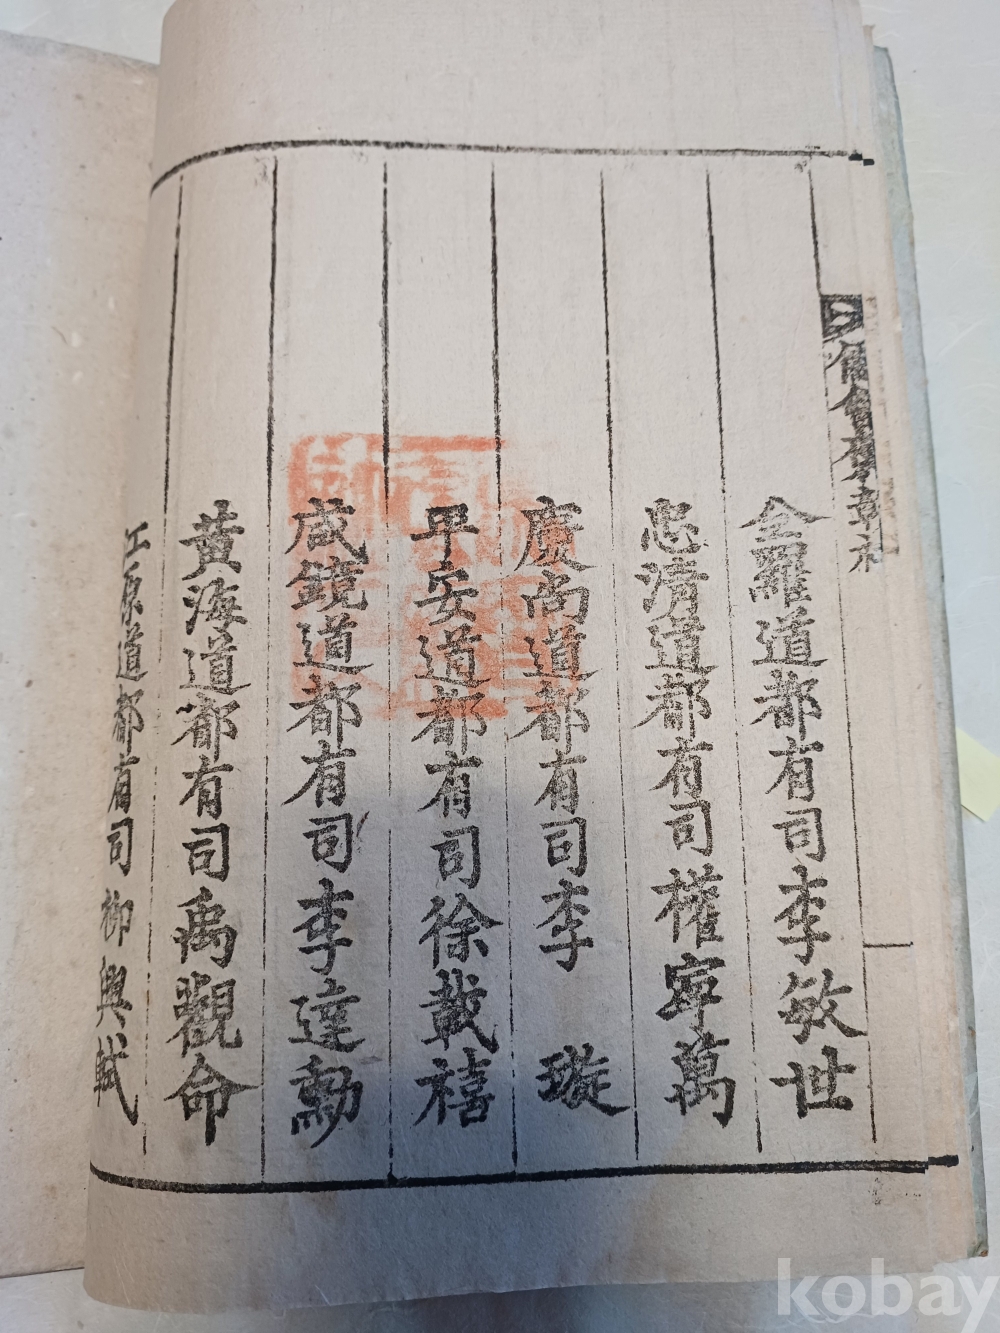 全羅道都有司李敏世
忠清道都有司權寧萬
慶尚道都有司李 璇
平安道都有司徐載禧
咸鏡道都有司李達勳
黃海道都有司禹觀命
江原道都有司柳興軾
kobay